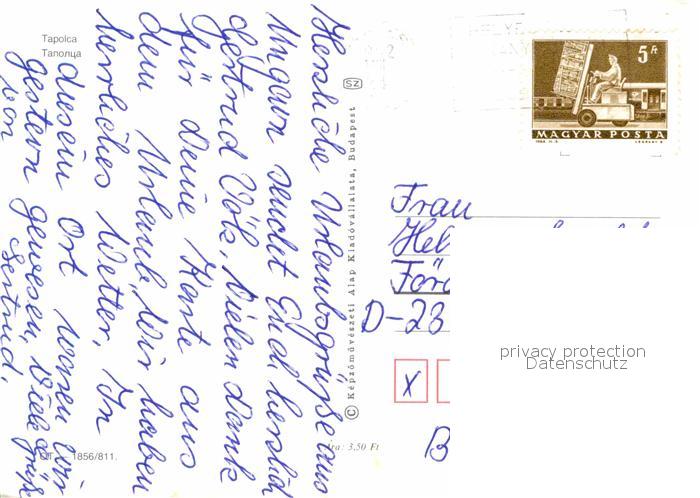 Tapolca
Таполца
Herzliche Urlaubsgrüße aus
Ungarn sendet Euch herzlich
Gertrud Völz, Vielen Dank
für Deine Karte aus
dem Urlaub, Wir haben
herrliches Wetter, In
diesem Ort waren wir
gestern gewesen, Viele Grüße
von Gertrud.
1856/811.
© Képzőművészeti Alap Kiadóvállalata, Budapest
SZ
Ára: 3,50 Ft
HELYE
5 Ft
MAGYAR POSTA
Frau
Hel
För
D-23
X
B
privacy protection
Datenschutz